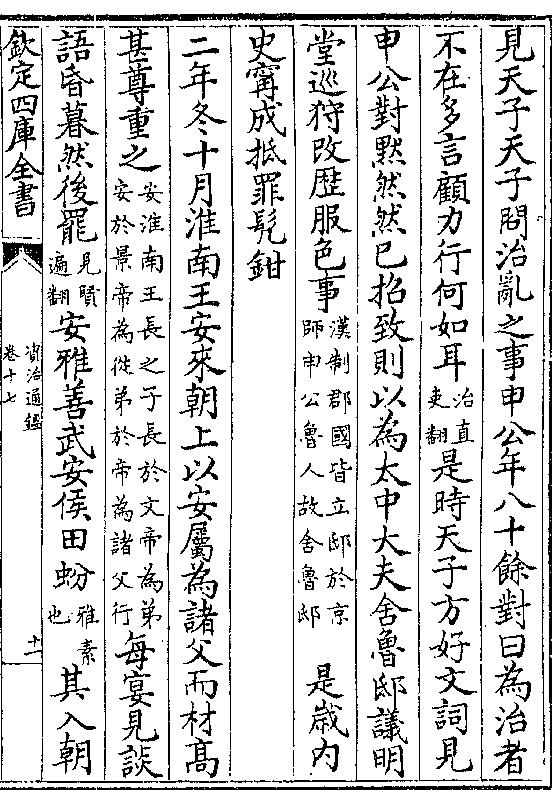 見天子天子問治亂之事申公年八十餘對曰為治者
不在多言顧力行何如耳治直吏翻是時天子方好文詞見
申公對黙然然已招致則以為太中大夫舍魯邸議明
堂巡狩改歴服色事漢制郡國皆立邸於京師申公魯人故舍魯邸 是歲内
史甯成抵罪髠鉗
二年冬十月淮南王安來朝上以安屬為諸父而材髙
甚尊重之安淮南王長之子長於文帝為弟安於景帝為從弟於帝為諸父行每宴見談
語昏暮然後罷見賢遍翻安雅善武安侯田蚡雅素也其入朝
欽定四庫全書
資治通鑑
卷十七
十一